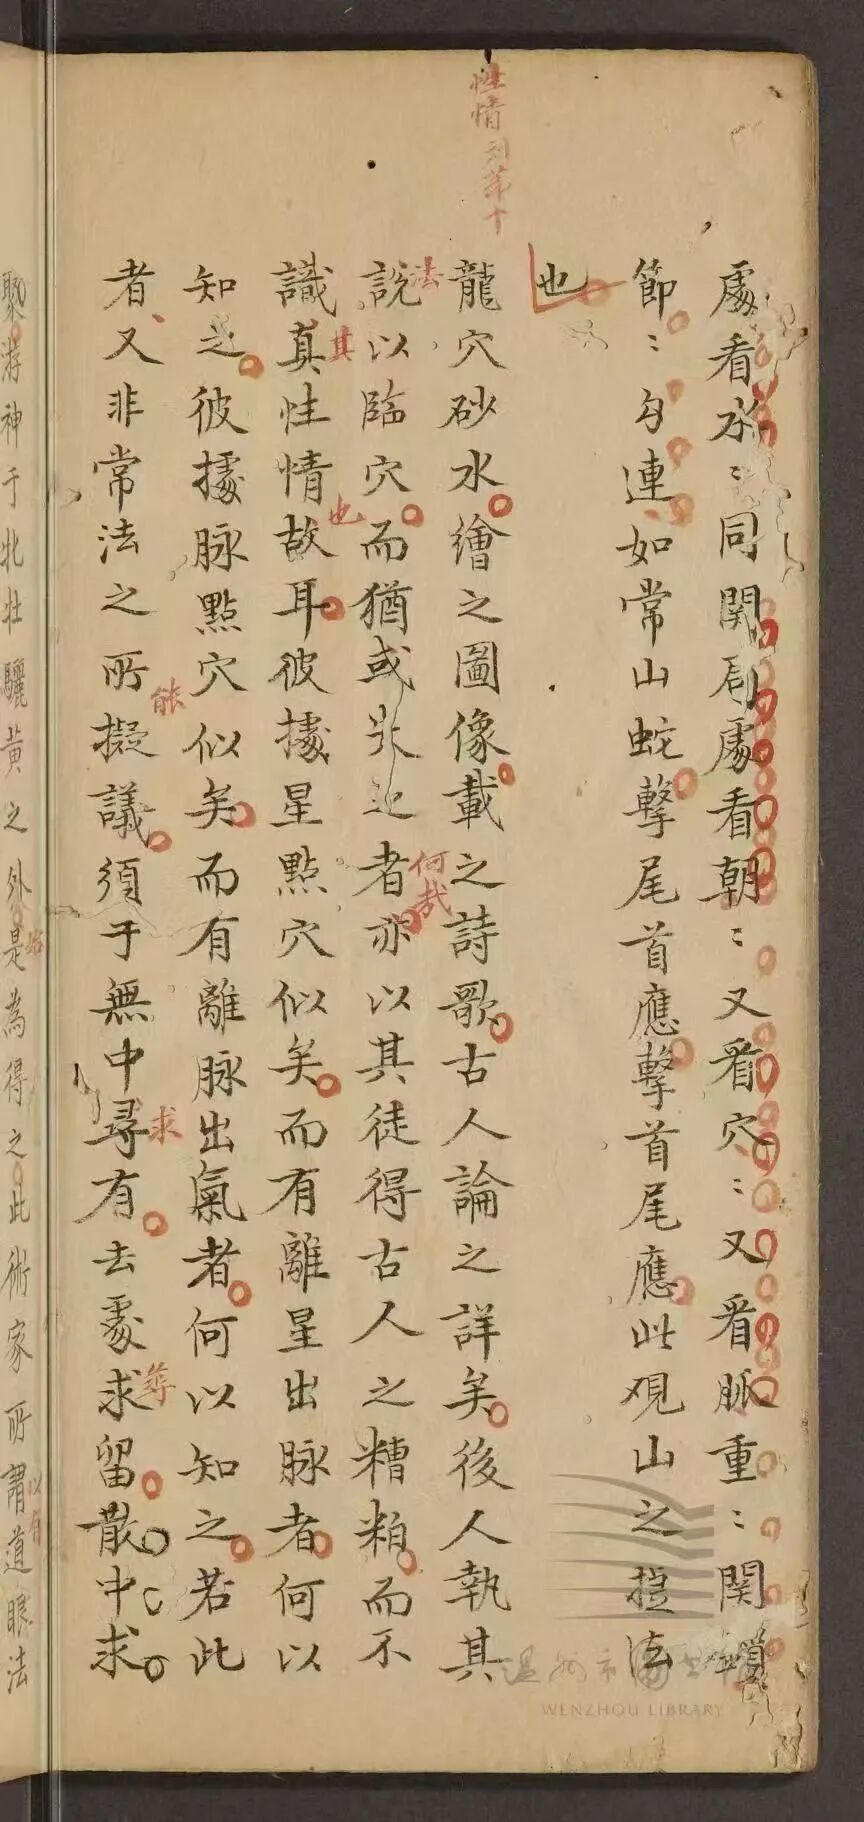 處看水〻同関局處看朝〻又看穴〻又看脈重〻関鎖
節〻勾連如常山蛇擊尾首應擊首尾應此观山之捷法
也
性情列第十
龍穴砂水繪之圖像載之詩歌古人論之詳矣後人執其
法
說以臨穴而猶或失之者亦以其徒得古人之糟粕而不
何哉
其
識真性情故耳彼據星點穴似矣而有離星出脉者何以
也
知之彼據脉點穴似矣而有離脉出氣者何以知之若此
者又非常法之所擬議須于無中尋有去處求留散中求
能
求
尋
聚游神于牝牡驪黃之外是為得之此術家所謂道眼法
以有
WENZHOU LIBRARY